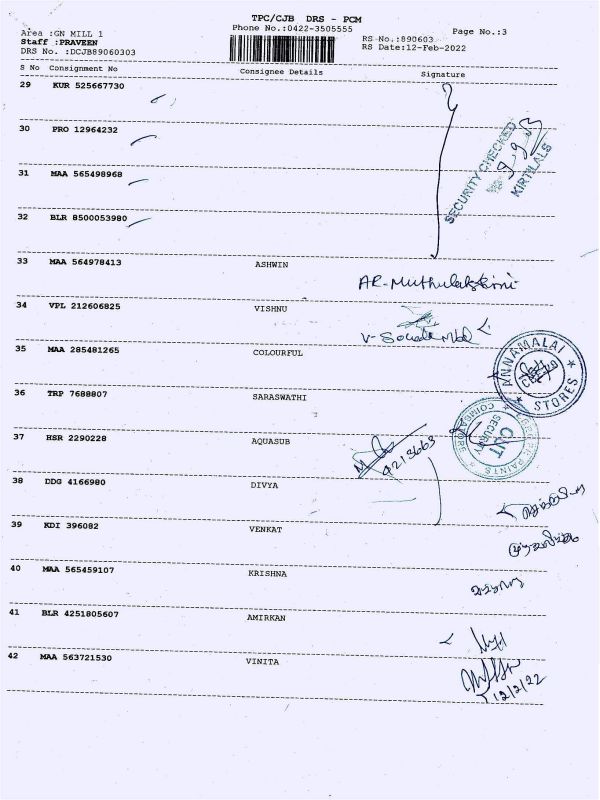 TPC/CJB DRS - PCM
Phone No.:0422-3505555
Area :GN MILL 1
Staff :PRAVEEN
DRS No. :DCJB89060303
RS No.:890603
RS Date:12-Feb-2022
Page No.:3
S No Consignment No Consignee Details Signature
29 KUR 525667730
30 PRO 12964232
31 MAA 565498968
32 BLR 8500053980
SECURITY CHECKED
KIRTILALS
33 MAA 564978413 ASHWIN
AR-Muthulakshmi
34 VPL 212606825 VISHNU
35 MAA 285481265 COLOURFUL
ANNAMALAI
STORES
36 TRP 7688807 SARASWATHI
37 HSR 2290228 AQUASUB
SECURITY
COIMBATORE
38 DDG 4166980 DIVYA
39 KDI 396082 VENKAT
40 MAA 565459107 KRISHNA
41 BLR 4251805607 AMIRKAN
42 MAA 563721530 VINITA
12/2/22